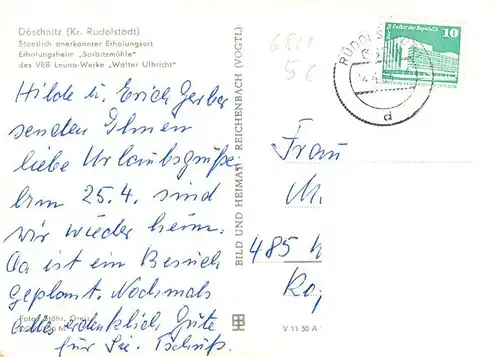 Döschnitz (Kr. Rudolstadt)
Staatlich anerkannter Erholungsort
Erholungsheim „Sorbitzmühle"
des VEB Leuna-Werke „Walter Ulbricht"
Hilde u. Erich Gerber
senden Ihnen
liebe Urlaubsgrüße.
Am 25.4. sind
wir wieder heim.
Da ist ein Besuch
geplant. Nochmals
alles erdenklich Gute
für Sie. Tschüß.
BILD UND HEIMAT · REICHENBACH (VOGTL)
V 11 50 A
Palast der Republik
10
RUDOLS
d
Frau
485